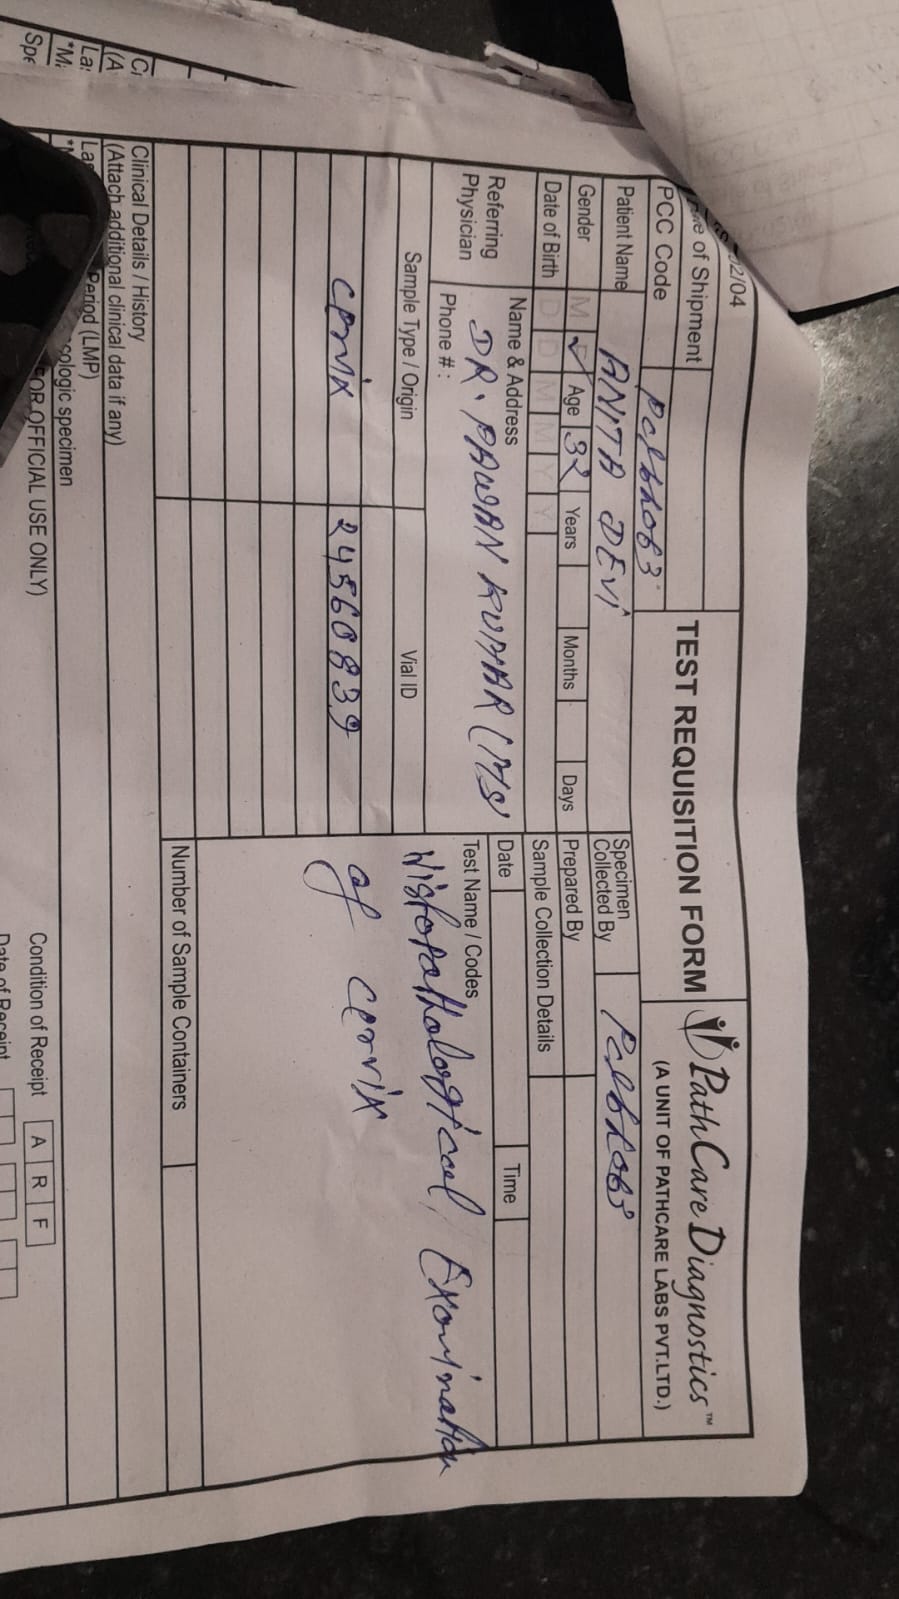 02/04
TEST REQUISITION FORM
PathCare Diagnostics™
(A UNIT OF PATHCARE LABS PVT.LTD.)
of Shipment
PCC Code
Patient Name ANITA DEVI
Gender M ✓ Age 32 Years Months Days
Date of Birth D D M M Y Y
Referring Physician
Name & Address
DR. PAWAN KUMAR (MS
Phone # :
Specimen Collected By
Prepared By
Sample Collection Details
Date Time
Test Name / Codes
Histopathological Examination
of cervix
Sample Type / Origin Vial ID
cervix 24560839
Number of Sample Containers
Clinical Details / History
(Attach additional clinical data if any)
Period (LMP)
ologic specimen
FOR OFFICIAL USE ONLY)
Condition of Receipt A R F
Date of Receipt
(A
Spe